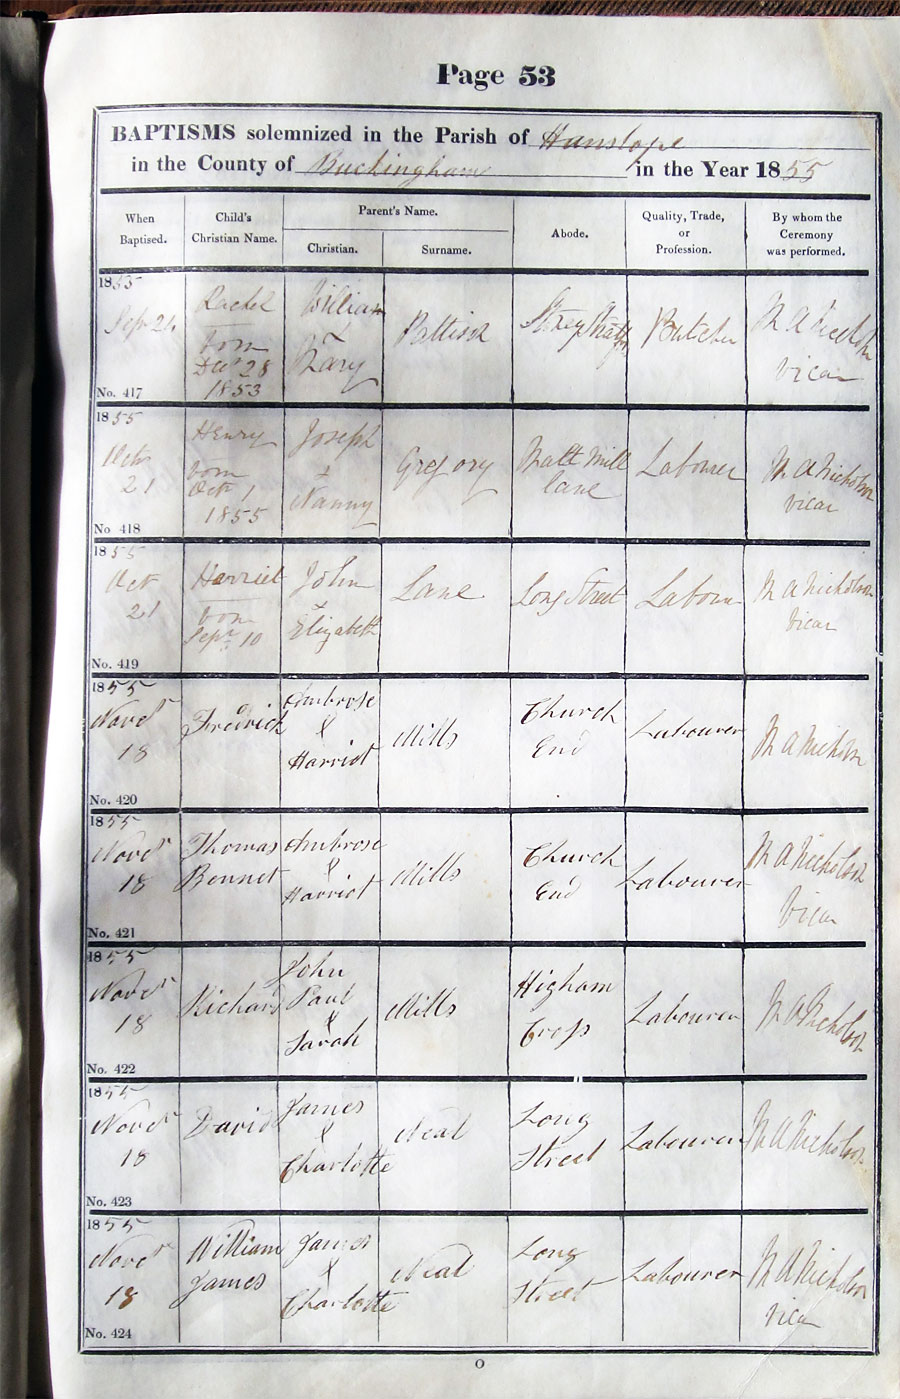 Page 53
BAPTISMS solemnized in the Parish of Hanslope
in the County of Buckingham in the Year 1855
When Baptised.
Child's Christian Name.
Parent's Name.
Christian.
Surname.
Abode.
Quality, Trade, or Profession.
By whom the Ceremony was performed.
1855
Sep 24
No. 417
Rachel
born
Decr 28
1853
William
&
Mary
Pattison
Butcher
M A Nicholson
Vicar
1855
Octr
21
No 418
Henry
born
Octr 1
1855
Joseph
&
Nanny
Gregory
Malt Mill
lane
Labourer
M A Nicholson
Vicar
1855
Oct
21
No. 419
Harriet
born
Sepr 10
John
&
Elizabeth
Lane
Long Street
Labourer
M A Nicholson
Vicar
1855
Novr
18
No. 420
Fredrick
Ambrose
&
Harriot
Mills
Church
End
Labourer
M A Nicholson
1855
Novr
18
No. 421
Thomas
Bennet
Ambrose
&
Harriot
Mills
Church
End
Labourer
M A Nicholson
Vicar
1855
Novr
18
No. 422
Richard
John
Paul
&
Sarah
Mills
Higham
Cross
Labourer
M A Nicholson
1855
Novr
18
No. 423
David
James
&
Charlotte
Neal
Long
Street
Labourer
M A Nicholson
1855
Novr
18
No. 424
William
James
James
&
Charlotte
Neal
Long
Street
Labourer
M A Nicholson
Vicar
O